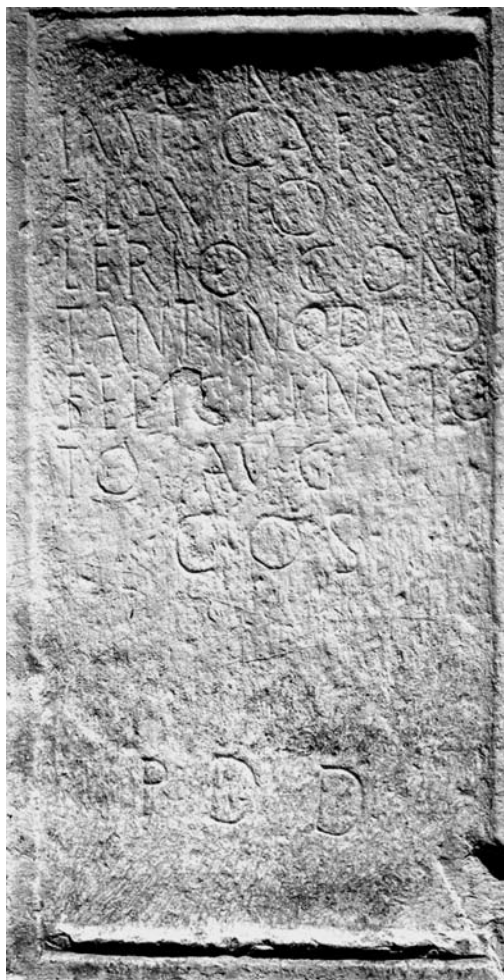 IMP CAES
FLAVIO VA
LERIO CONS
TANTINO
FELICI
TO AVG
COS
P D D